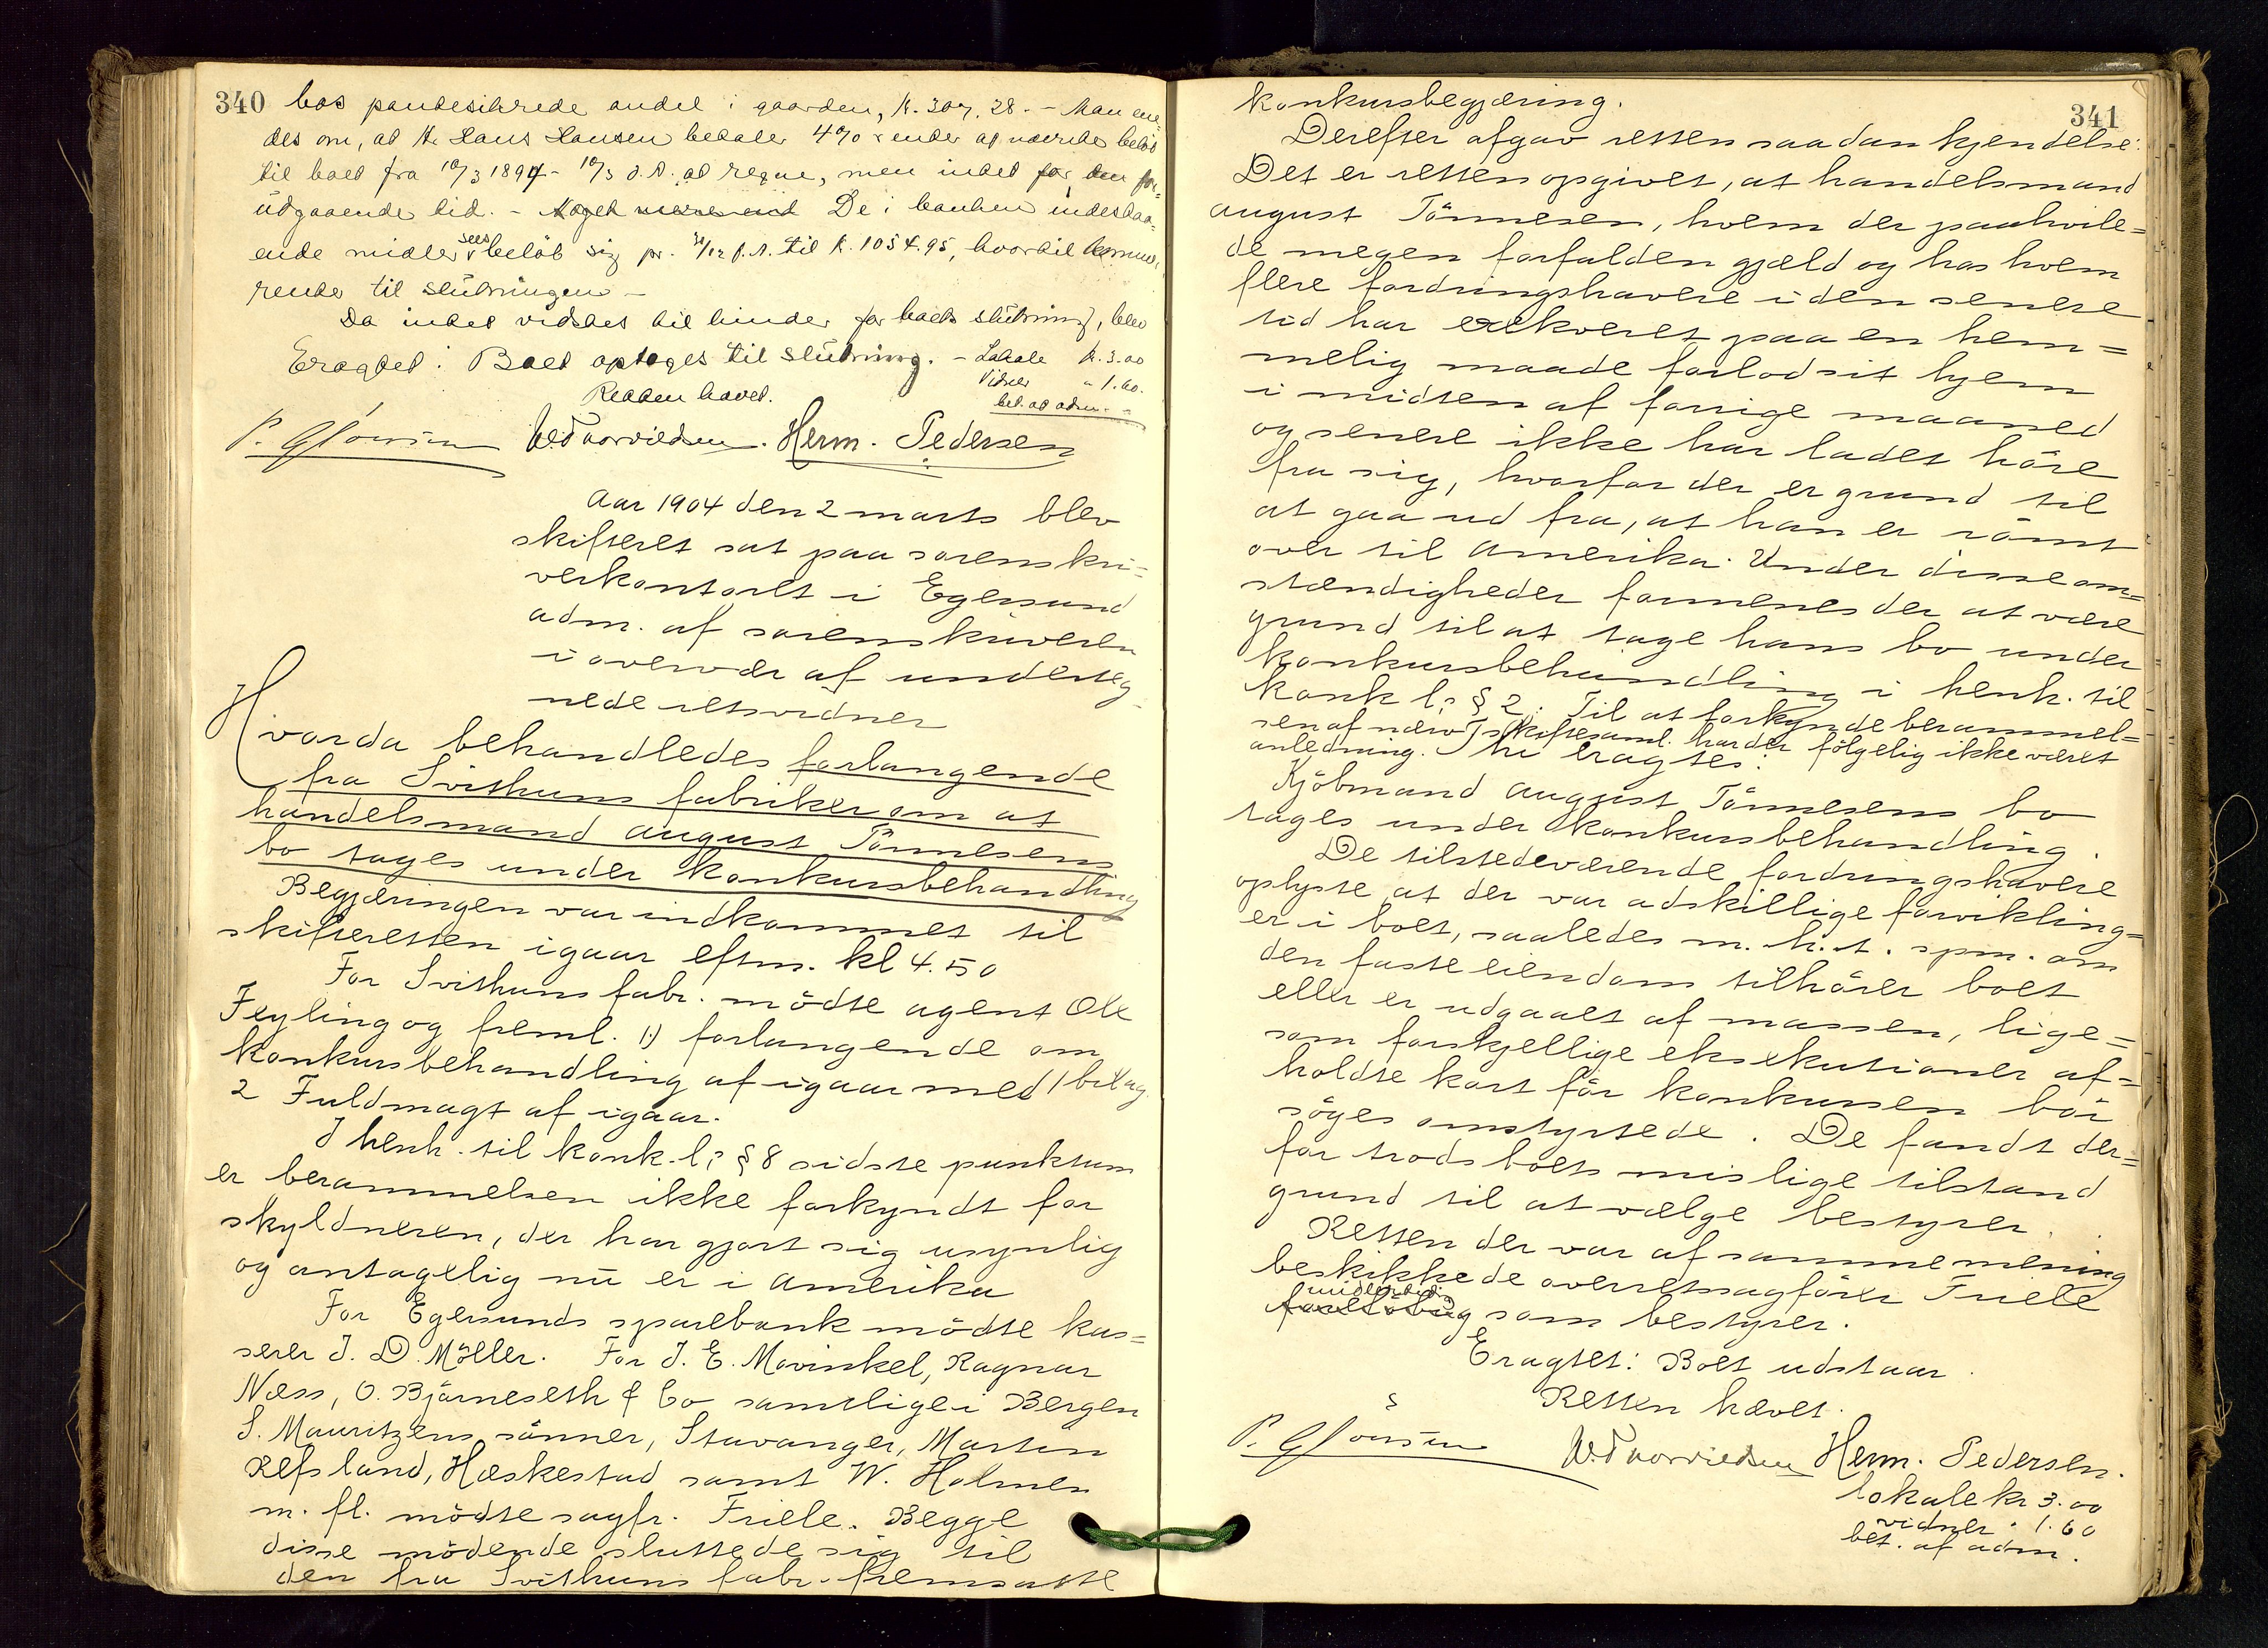 340
bos pantesikrede andel i gaarden, k. 307.28. – Man ene-
des om, at Hr Hans Hansen betaler 4% renter af nævnte beløb
til boet fra 10/3 1897 – 10/3 d.A. at regne, men intet for den for-
udgaaende tid. – Noget De i banken indestaa-
ende midler sees beløb sig pr. 31/12 f.A. til k. 1054.95, hvortil kommer
renter til slutningen –
Da intet vidstes til hinder for boets slutning, blev
Eragtet: Boet optages til slutning. – Lokale k. 3.00
Vidner " 1.60.
Retten hævet.
bet. af adm.
Herm. Pedersen
Aar 1904 den 2 marts blev
skifteret sat paa sorenskri=
verkontoret i Egersund
adm. af sorenskriveren
i overvær af underteg-
nede retsvidner
Hvorda behandledes forlangende
fra Svithuns fabriker om at
handelsmand August Tönnesens
bo tages under konkursbehandling
Begjæringen var indkommet til
skifteretten igaar eftm. kl 4.50
For Svithuns fabr. mödte agent Ole
Feyling og freml. 1) forlangende om
konkursbehandling af igaar med 1 bilag
2 Fuldmagt af igaar.
I henh. til konk.l: § 8 sidste punktum
er berammelsen ikke forkyndt for
skyldneren, der har gjort sig usynlig
og antagelig nu er i Amerika
For Egersunds sparebank mödte kas=
serer J. D. Möller. For J. E. Mowinkel, Ragnar
Næss, O. Bjärneseth & Co samtlige i Bergen
S. Mauritzens sönner, Stavanger, Martin
Refsland, Hæskestad samt W. Holmen
m. fl. mödte sagfr. Friele. Begge
disse mödende sluttede sig til
den fra Svithuns fabr. fremsatte
341
konkursbegjæring.
Derefter afgav retten saadan kjendelse:
Det er retten opgivet, at handelsmand
August Tönnesen, hvem der paahvile=
de megen forfalden gjæld og hos hvem
flere fordringshavere i den senere
tid har exekveret paa en hem=
melig maade forlod sit hjem
i midten af forrige maaned
og senere ikke har ladet höre
fra sig, hvorfor der er grund til
at gaa ud fra, at han er römt
over til Amerika. Under disse om=
stændigheder formenes der at være
grund til at tage hans bo under
konkursbehandling i henh. til
konk l: § 2. Til at forkynde berammel=
sen af nærv. skiftesaml. har der fölgelig ikke været
anledning. Thi eragtes:
Kjöbmand August Tönnesens bo
tages under konkursbehandling.
De tilstedeværende fordringshavere
oplyste at der var adskillige forvikling=
er i boet, saaledes m. h. t. spm. om
den faste eiendom tilhörer boet
eller er udgaaet af massen, lige=
som forskjellige eksekutioner af=
holdte kort för konkursen bör
söges omstyrtede. De fandt der=
for trods boets mislige tilstand
grund til at vælge bestyrer.
Retten der var af samme mening
beskikkede overretssagförer Friele
midlertidig
forelöbig som bestyrer.
Eragtet: Boet udstaar.
Retten hævet.
Herm. Pedersen.
lokale kr 3.00
vidner " 1.60
bet. af adm.